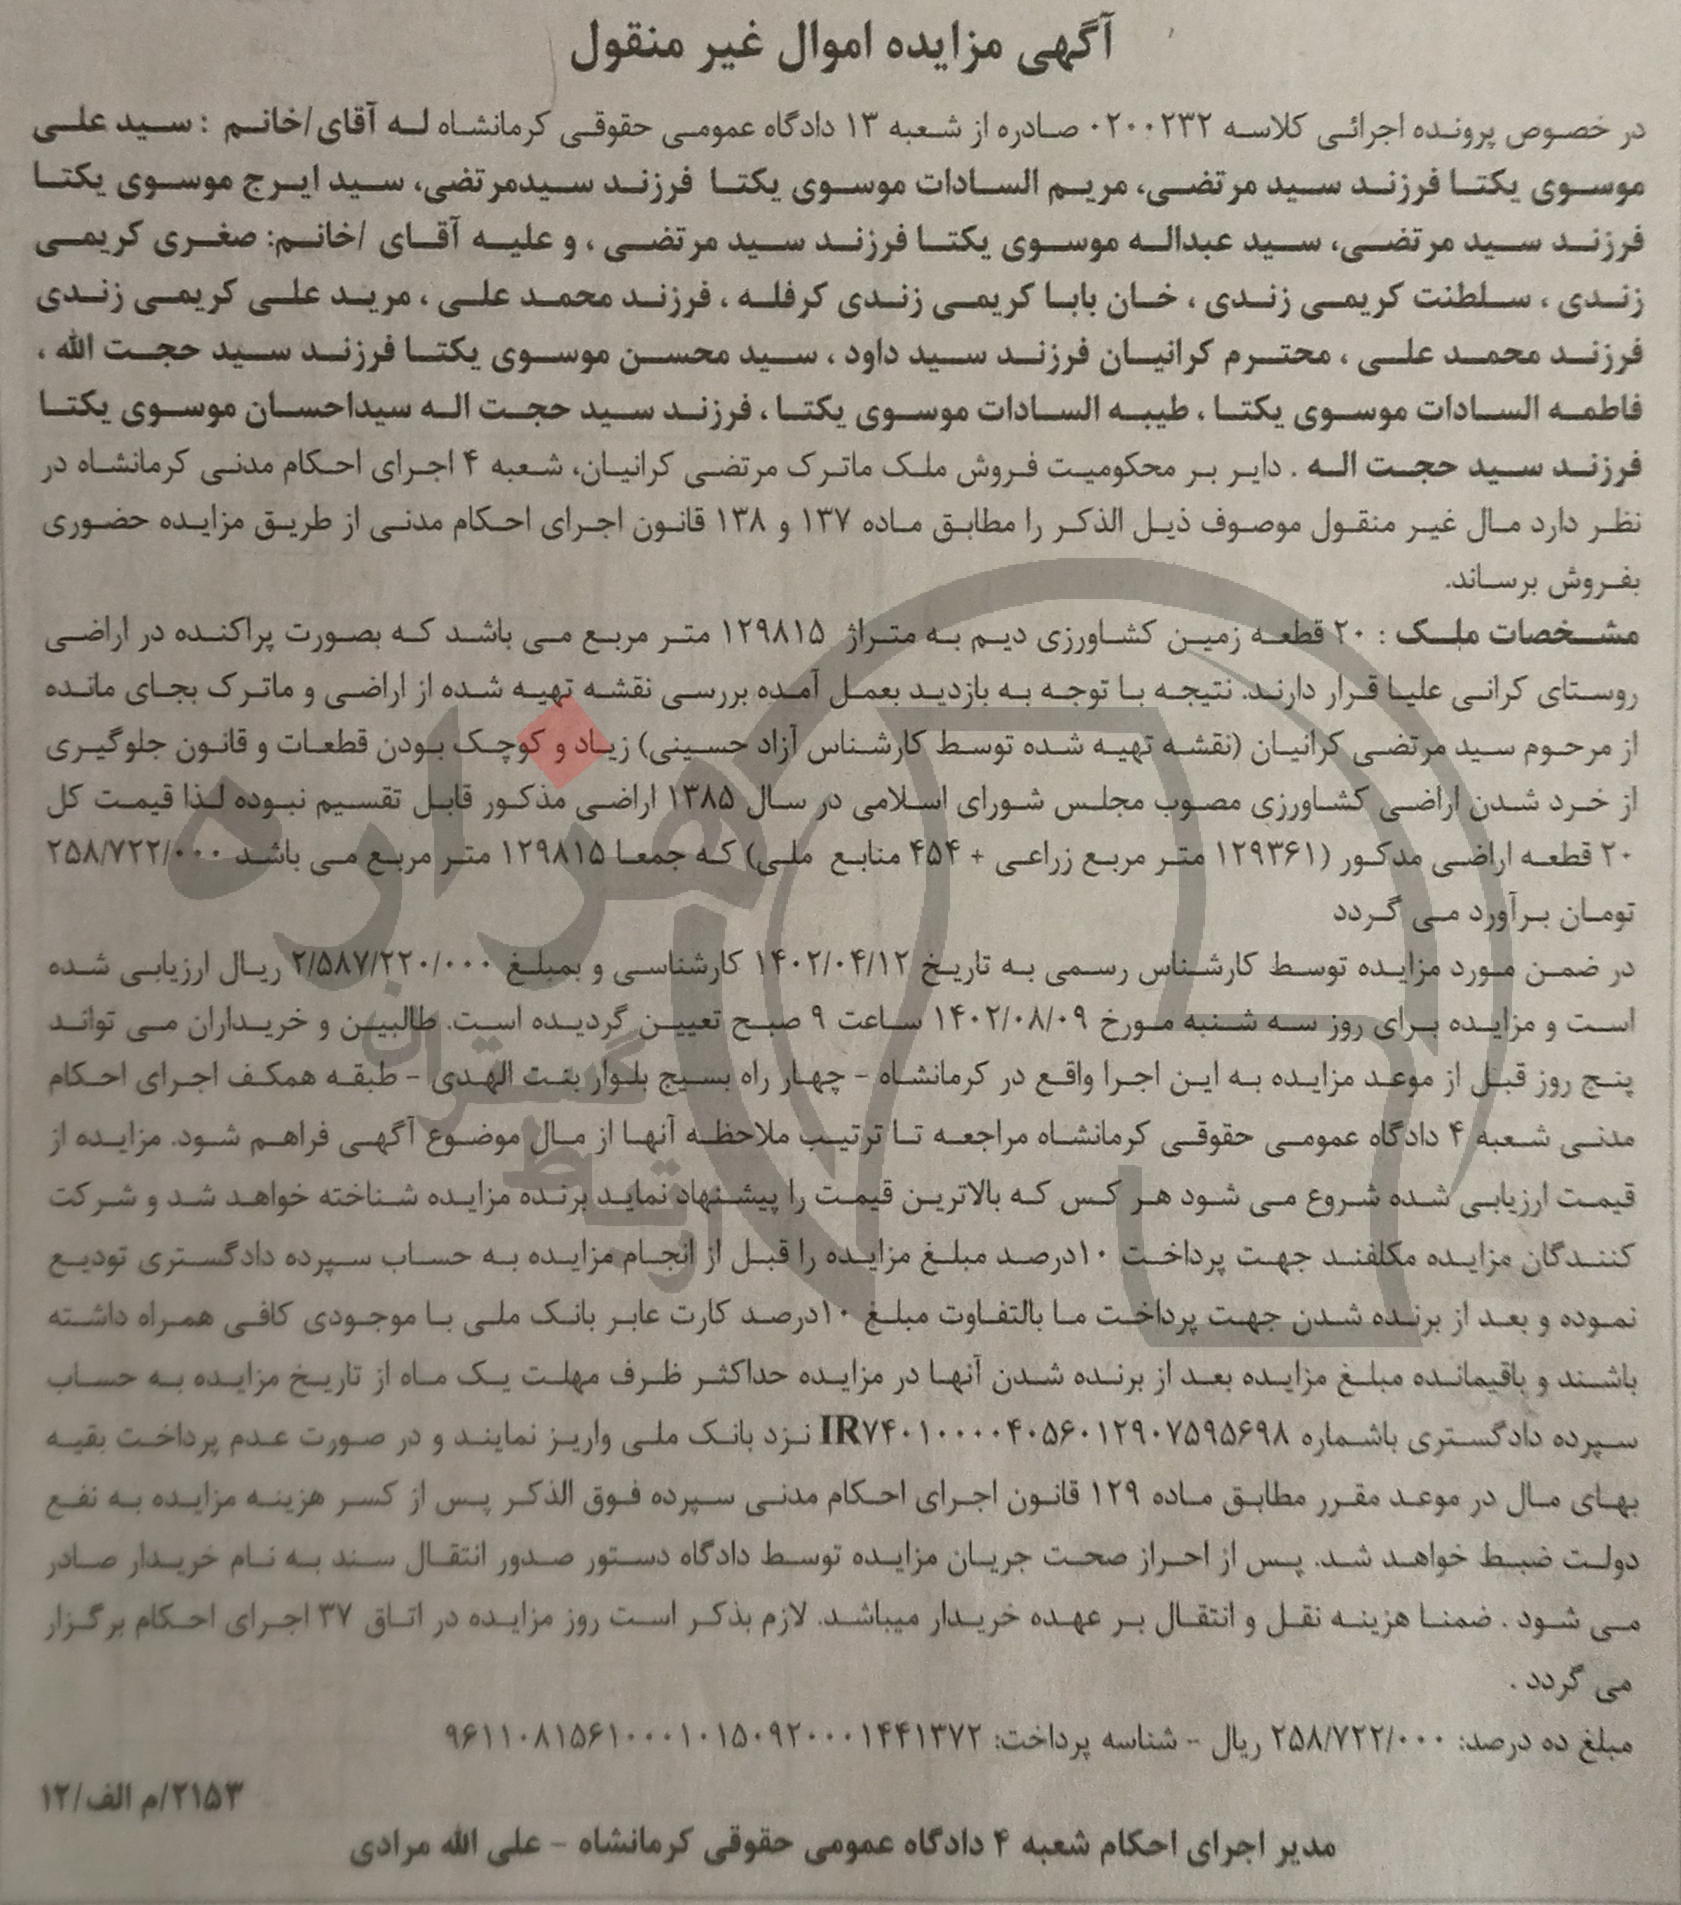 آگهی مزایده اموال غیر منقول
در خصوص پرونده اجرائی کلاسه ۰۲۰۰۲۳۲ صادره از شعبه ۱۳ دادگاه عمومی حقوقی کرمانشاه له آقای/خانم : سید علی
موسوی یکتا فرزند سید مرتضی، مریم السادات موسوی یکتا فرزند سیدمرتضی، سید ایرج موسوی یکتا
فرزند سید مرتضی، سید عبداله موسوی یکتا فرزند سید مرتضی ، و علیه آقای /خانم: صغری کریمی
زندی ، سلطنت کریمی زندی ، خان بابا کریمی زندی کرفله ، فرزند محمد علی ، مرید علی کریمی زندی
فرزند محمد علی ، محترم کرانیان فرزند سید داود ، سید محسن موسوی یکتا فرزند سید حجت الله ،
فاطمه السادات موسوی یکتا ، طیبه السادات موسوی یکتا ، فرزند سید حجت اله سیداحسان موسوی یکتا
فرزند سید حجت اله . دایر بر محکومیت فروش ملک ماترک مرتضی کرانیان، شعبه ۴ اجرای احکام مدنی کرمانشاه در
نظر دارد مال غیر منقول موصوف ذیل الذکر را مطابق ماده ۱۳۷ و ۱۳۸ قانون اجرای احکام مدنی از طریق مزایده حضوری
بفروش برساند.
مشخصات ملک : ۲۰ قطعه زمین کشاورزی دیم به متراژ ۱۲۹۸۱۵ متر مربع می باشد که بصورت پراکنده در اراضی
روستای کرانی علیا قرار دارند. نتیجه با توجه به بازدید بعمل آمده بررسی نقشه تهیه شده از اراضی و ماترک بجای مانده
از مرحوم سید مرتضی کرانیان (نقشه تهیه شده توسط کارشناس آزاد حسینی) زیاد و کوچک بودن قطعات و قانون جلوگیری
از خرد شدن اراضی کشاورزی مصوب مجلس شورای اسلامی در سال ۱۳۸۵ اراضی مذکور قابل تقسیم نبوده لذا قیمت کل
۲۰ قطعه اراضی مدکور (۱۲۹۳۶۱ متر مربع زراعی + ۴۵۴ منابع ملی) که جمعا ۱۲۹۸۱۵ متر مربع می باشد ۲۵۸/۷۲۲/۰۰۰
تومان برآورد می گردد
در ضمن مورد مزایده توسط کارشناس رسمی به تاریخ ۱۴۰۲/۰۴/۱۲ کارشناسی و بمبلغ ۲/۵۸۷/۲۲۰/۰۰۰ ریال ارزیابی شده
است و مزایده برای روز سه شنبه مورخ ۱۴۰۲/۰۸/۰۹ ساعت ۹ صبح تعیین گردیده است. طالبین و خریداران می تواند
پنج روز قبل از موعد مزایده به این اجرا واقع در کرمانشاه - چهار راه بسیج بلوار بنت الهدی - طبقه همکف اجرای احکام
مدنی شعبه ۴ دادگاه عمومی حقوقی کرمانشاه مراجعه تا ترتیب ملاحظه آنها از مال موضوع آگهی فراهم شود. مزایده از
قیمت ارزیابی شده شروع می شود هر کس که بالاترین قیمت را پیشنهاد نماید برنده مزایده شناخته خواهد شد و شرکت
کنندگان مزایده مکلفند جهت پرداخت ۱۰درصد مبلغ مزایده را قبل از انجام مزایده به حساب سپرده دادگستری تودیع
نموده و بعد از برنده شدن جهت پرداخت ما بالتفاوت مبلغ ۱۰درصد کارت عابر بانک ملی با موجودی کافی همراه داشته
باشند و باقیمانده مبلغ مزایده بعد از برنده شدن آنها در مزایده حداکثر ظرف مهلت یک ماه از تاریخ مزایده به حساب
سپرده دادگستری باشماره IR۷۴۰۱۰۰۰۰۴۰۵۶۰۱۲۹۰۷۵۹۵۶۹۸ نزد بانک ملی واریز نمایند و در صورت عدم پرداخت بقیه
بهای مال در موعد مقرر مطابق ماده ۱۲۹ قانون اجرای احکام مدنی سپرده فوق الذکر پس از کسر هزینه مزایده به نفع
دولت ضبط خواهد شد. پس از احراز صحت جریان مزایده توسط دادگاه دستور صدور انتقال سند به نام خریدار صادر
می شود . ضمنا هزینه نقل و انتقال بر عهده خریدار میباشد. لازم بذکر است روز مزایده در اتاق ۳۷ اجرای احکام برگزار
می گردد .
مبلغ ده درصد: ۲۵۸/۷۲۲/۰۰۰ ریال - شناسه پرداخت: ۹۶۱۱۰۸۱۵۶۱۰۰۰۱۰۱۵۰۹۲۰۰۰۱۴۴۱۳۷۲
۲۱۵۳/م الف/۱۲
مدیر اجرای احکام شعبه ۴ دادگاه عمومی حقوقی کرمانشاه - علی الله مرادی
هزاره
گستران
ارتباط